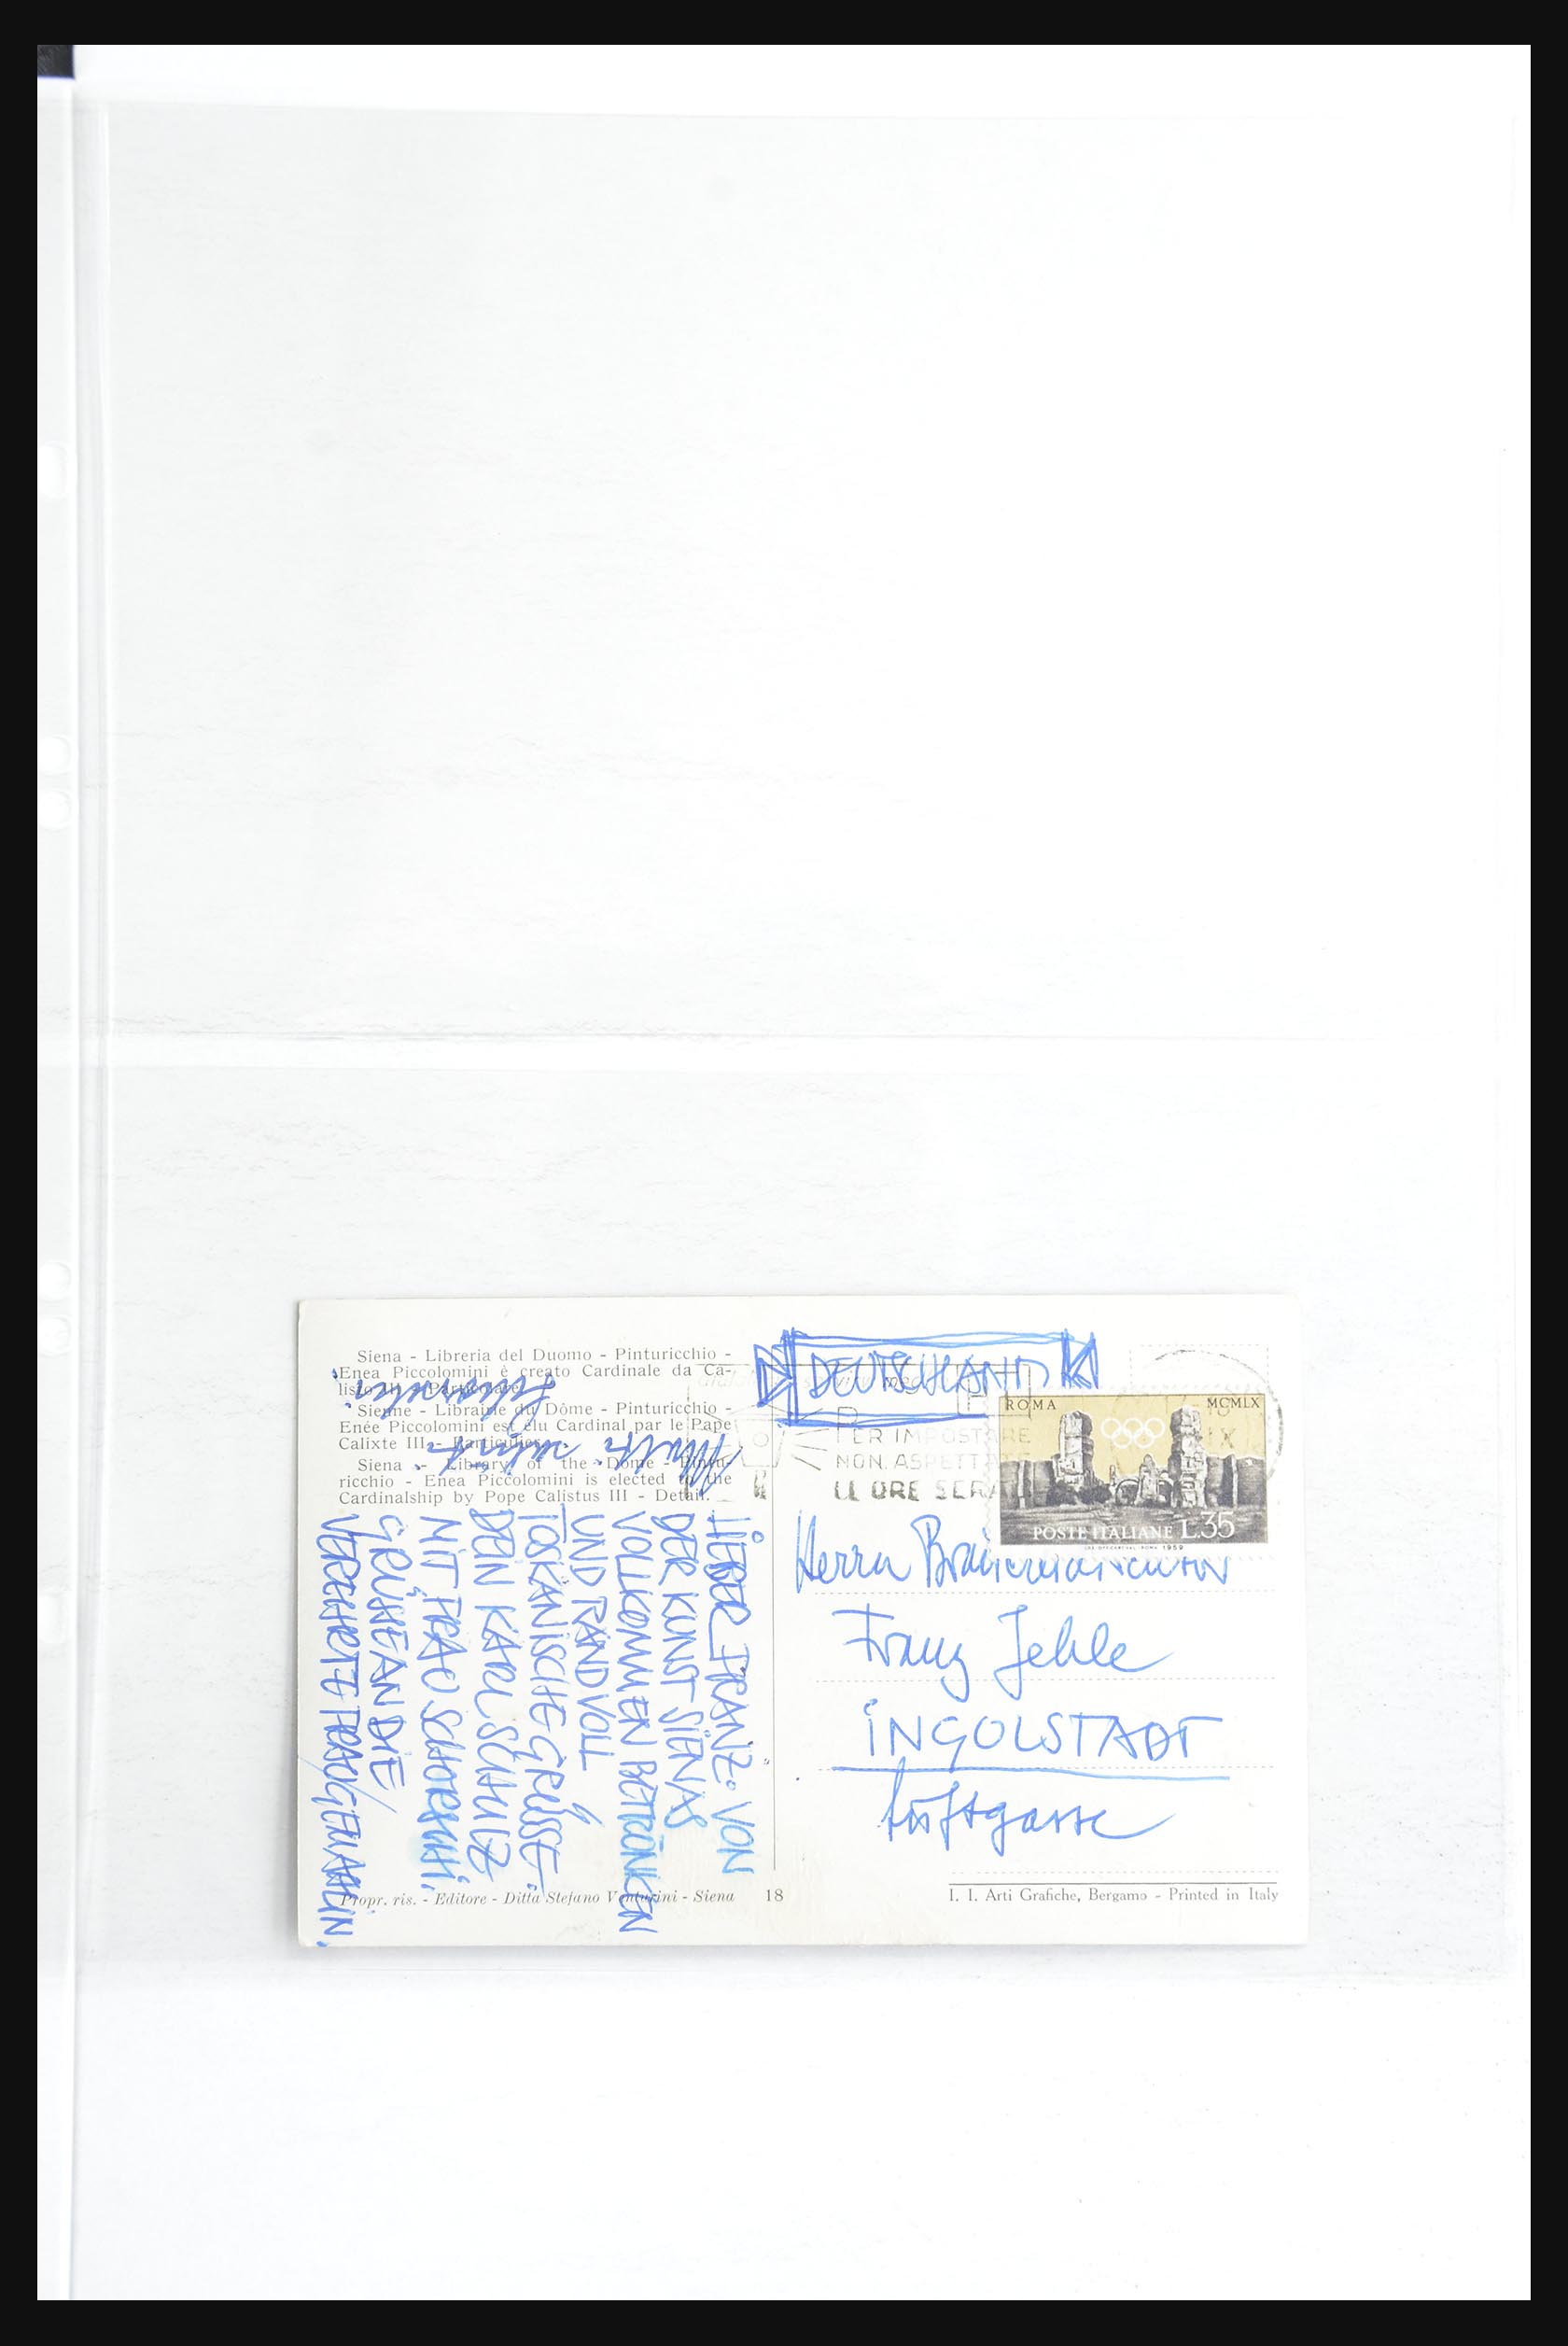 Siena - Libreria del Duomo - Pinturicchio -
Enea Piccolomini è creato Cardinale da Ca-
listo III - Particolare.
Sienne - Librairie du Dôme - Pinturicchio -
Enée Piccolomini est élu Cardinal par le Pape
Calixte III - Particulier.
Siena - Library of the Dome - Pintu-
ricchio - Enea Piccolomini is elected to the
Cardinalship by Pope Calistus III - Detail.
LIEBER FRANZ: VON
DER KUNST SIENAS
VOLLKOMMEN BETRUNKEN
UND RANDVOLL
TOSKANISCHE GRÜSSE.
DEIN KARL SCHULZ
MIT FRAU
GRÜSSE AN DIE
VEREHRTE FRAU GEMAHLIN.
Propr. ris. - Editore - Ditta Stefano Venturini - Siena
18
DEUTSCHLAND
PER IMPOSTARE
NON ASPETTARE
LE ORE SERA
ROMA MCMLX
POSTE ITALIANE L.35
Herrn
Franz Jehle
INGOLSTADT
Luftgasse
I. I. Arti Grafiche, Bergamo - Printed in Italy